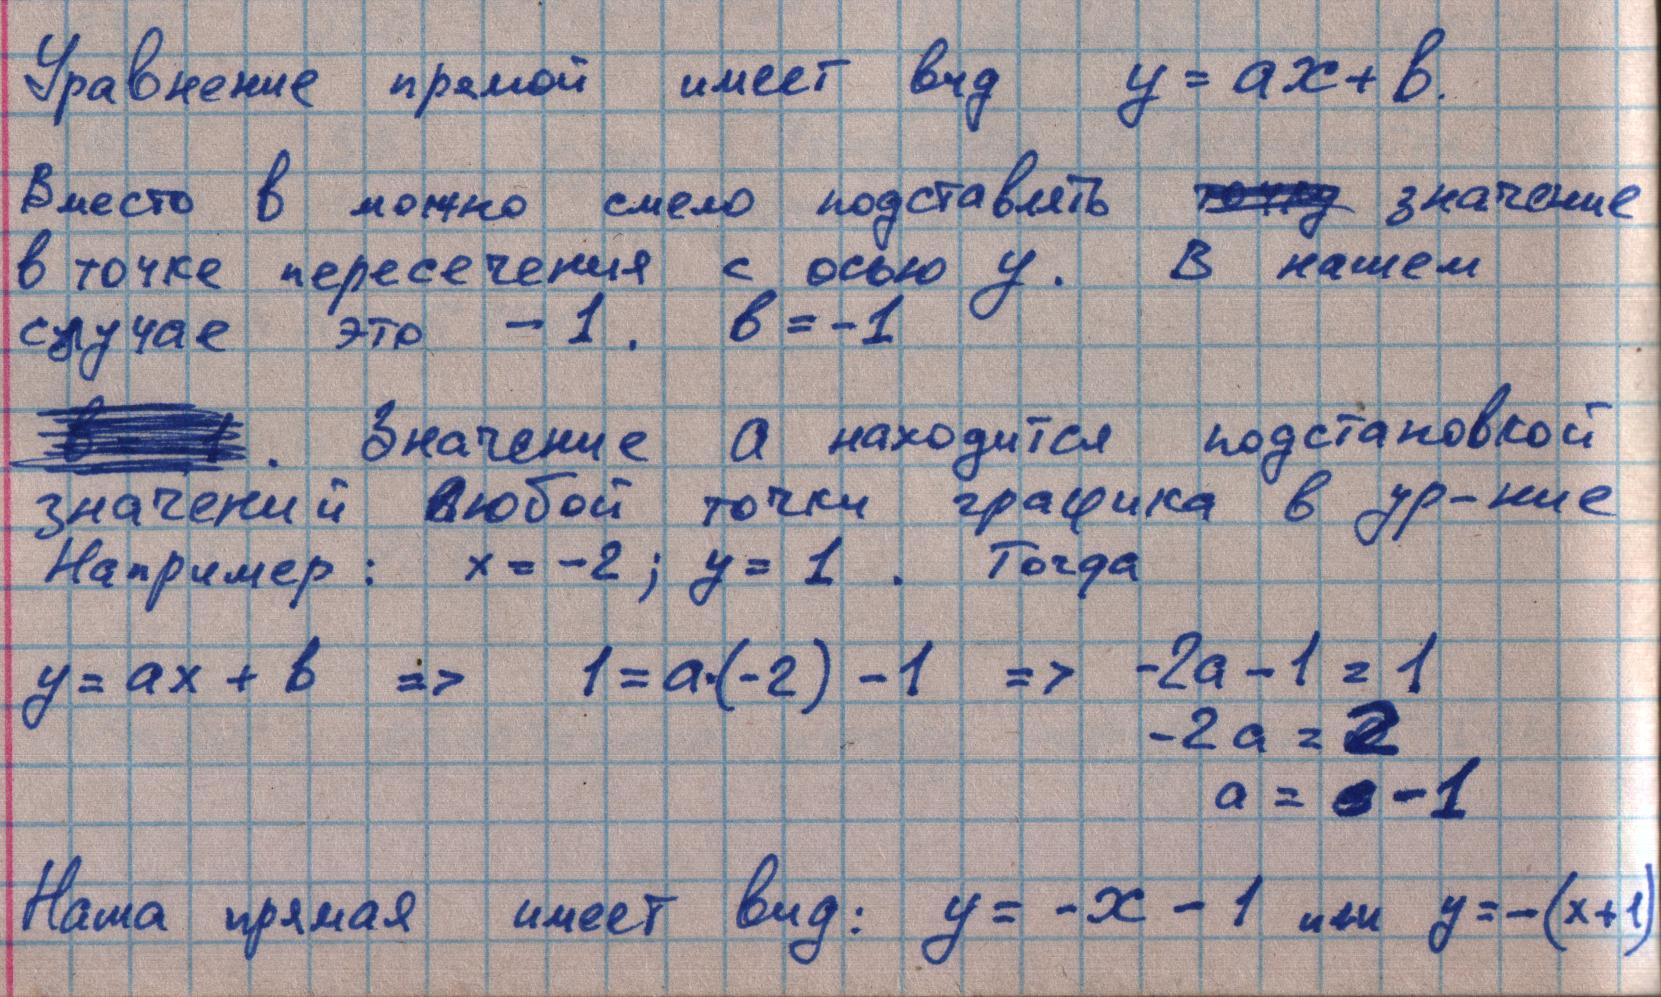 Уравнение прямой имеет вид y = ax + b.
Вместо b можно смело подставлять значение
в точке пересечения с осью y. В нашем
случае это -1. b = -1
. Значение a находится подстановкой
значений любой точки графика в ур-ние
Например: x = -2; y = 1. Тогда
y = ax + b => 1 = a·(-2) - 1 => -2a - 1 = 1
-2a = 2
a = -1
Наша прямая имеет вид: y = -x - 1 или y = -(x+1)